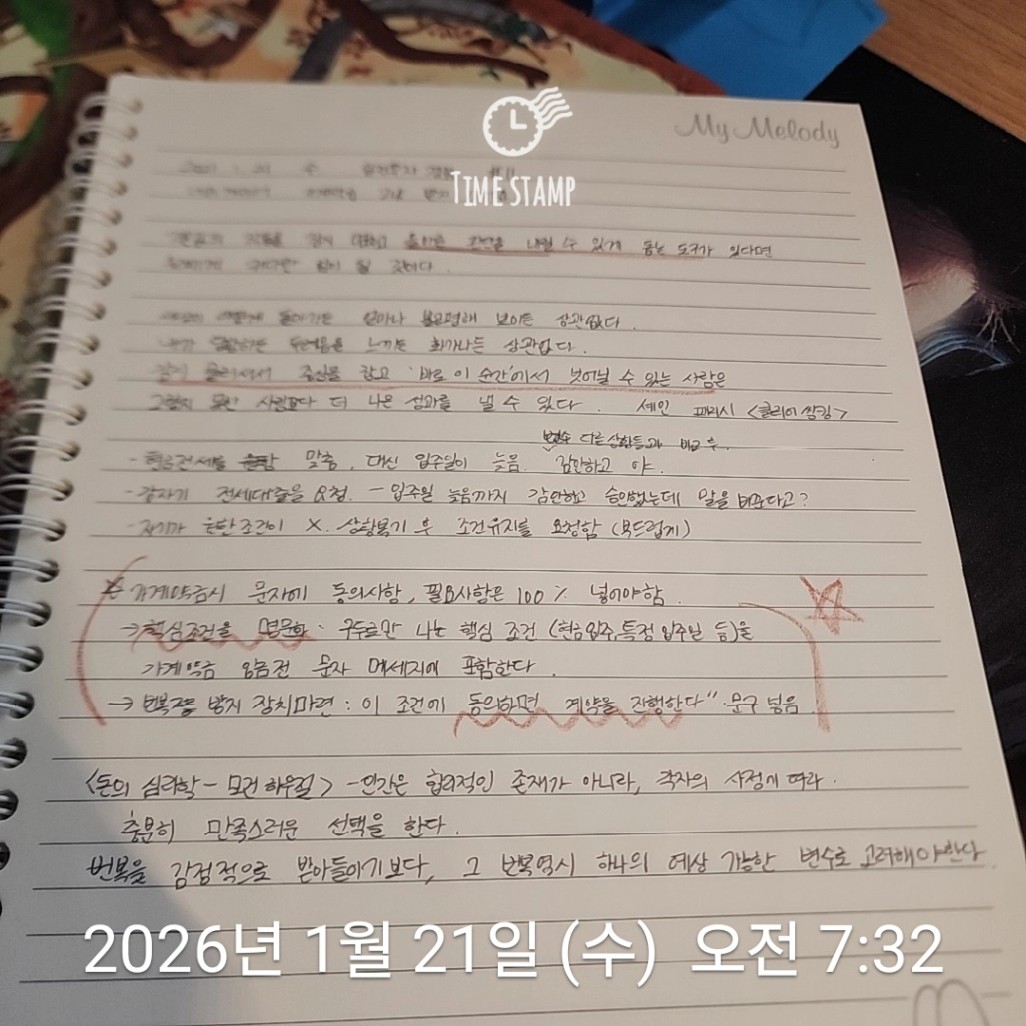 My Melody
TIME STAMP
수
올바른 판단을 내릴 수 있게 돕는 도구가 있다면
힘이 될 것이다.
얼마나 불공평해 보이든 상관없다.
두려움을 느끼든 화가나든 상관없다.
물러서서 중심을 잡고 '바로 이 순간'에서 벗어날 수 있는 사람은
그렇지 못한 사람보다 더 나은 성과를 낼 수 있다. 셰인 패리시 <클리어 씽킹>
다른 상황들과 비교 후.
- 현금전세를 맞춤, 대신 입주일이 늦음. 감안하고 ok.
- 갑자기 전세대출을 요청. - 입주일 늦음까지 감안하고 승인했는데 말을 바꾼다고?
- 자기가 조건이 X. 상황복기 후 조건유지를 요청함 (부드럽게)
※ 가계약금시 문자에 동의사항, 필요사항은 100% 넣어야함.
→ 핵심조건을 명문화. 구두로만 나눈 핵심 조건 (현금입주, 특정 입주일 등)을
가계약금 입금전 문자 메세지에 포함한다.
→ 번복 방지 장치마련 : 이 조건에 동의하면 계약을 진행한다" 문구 넣음.
<돈의 심리학 - 모건 하우절> - 인간은 합리적인 존재가 아니라, 각자의 사정에 따라.
충분히 만족스러운 선택을 한다.
번복을 감정적으로 받아들이기보다, 그 번복역시 하나의 예상 가능한 변수로 고려해야한다
2026년 1월 21일 (수) 오전 7:32